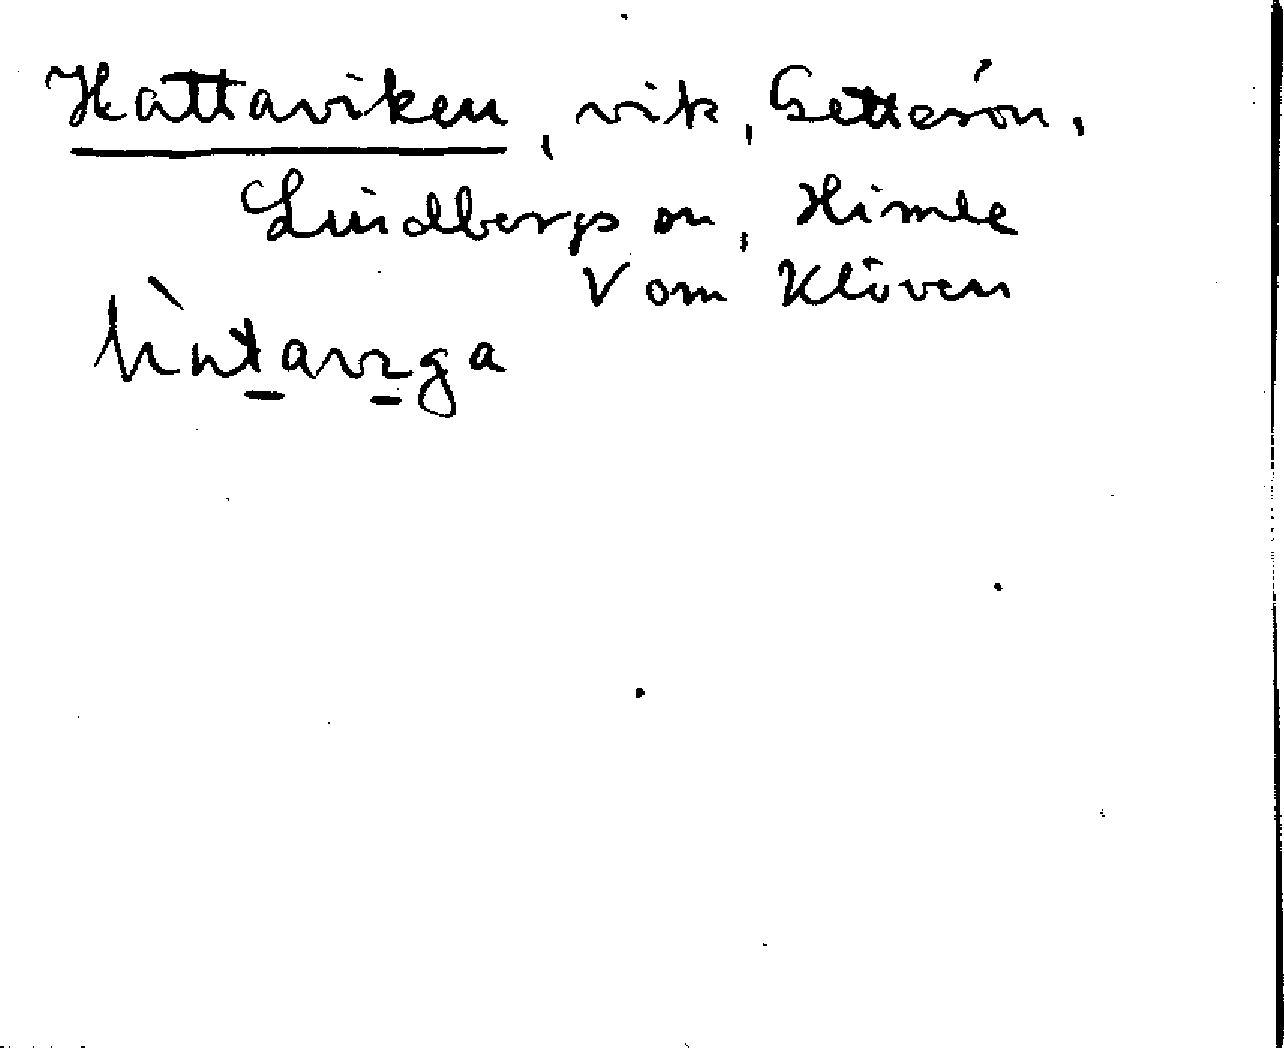 Hattaviken, vik, Getterön,
Lindbergs sn, Himle
V om Klöven